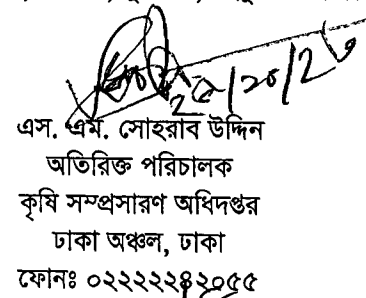 ২৫/১০/২৩
এস. এম. সোহরাব উদ্দিন
অতিরিক্ত পরিচালক
কৃষি সম্প্রসারণ অধিদপ্তর
ঢাকা অঞ্চল, ঢাকা
ফোনঃ ০২২২২২৪২০৫৫